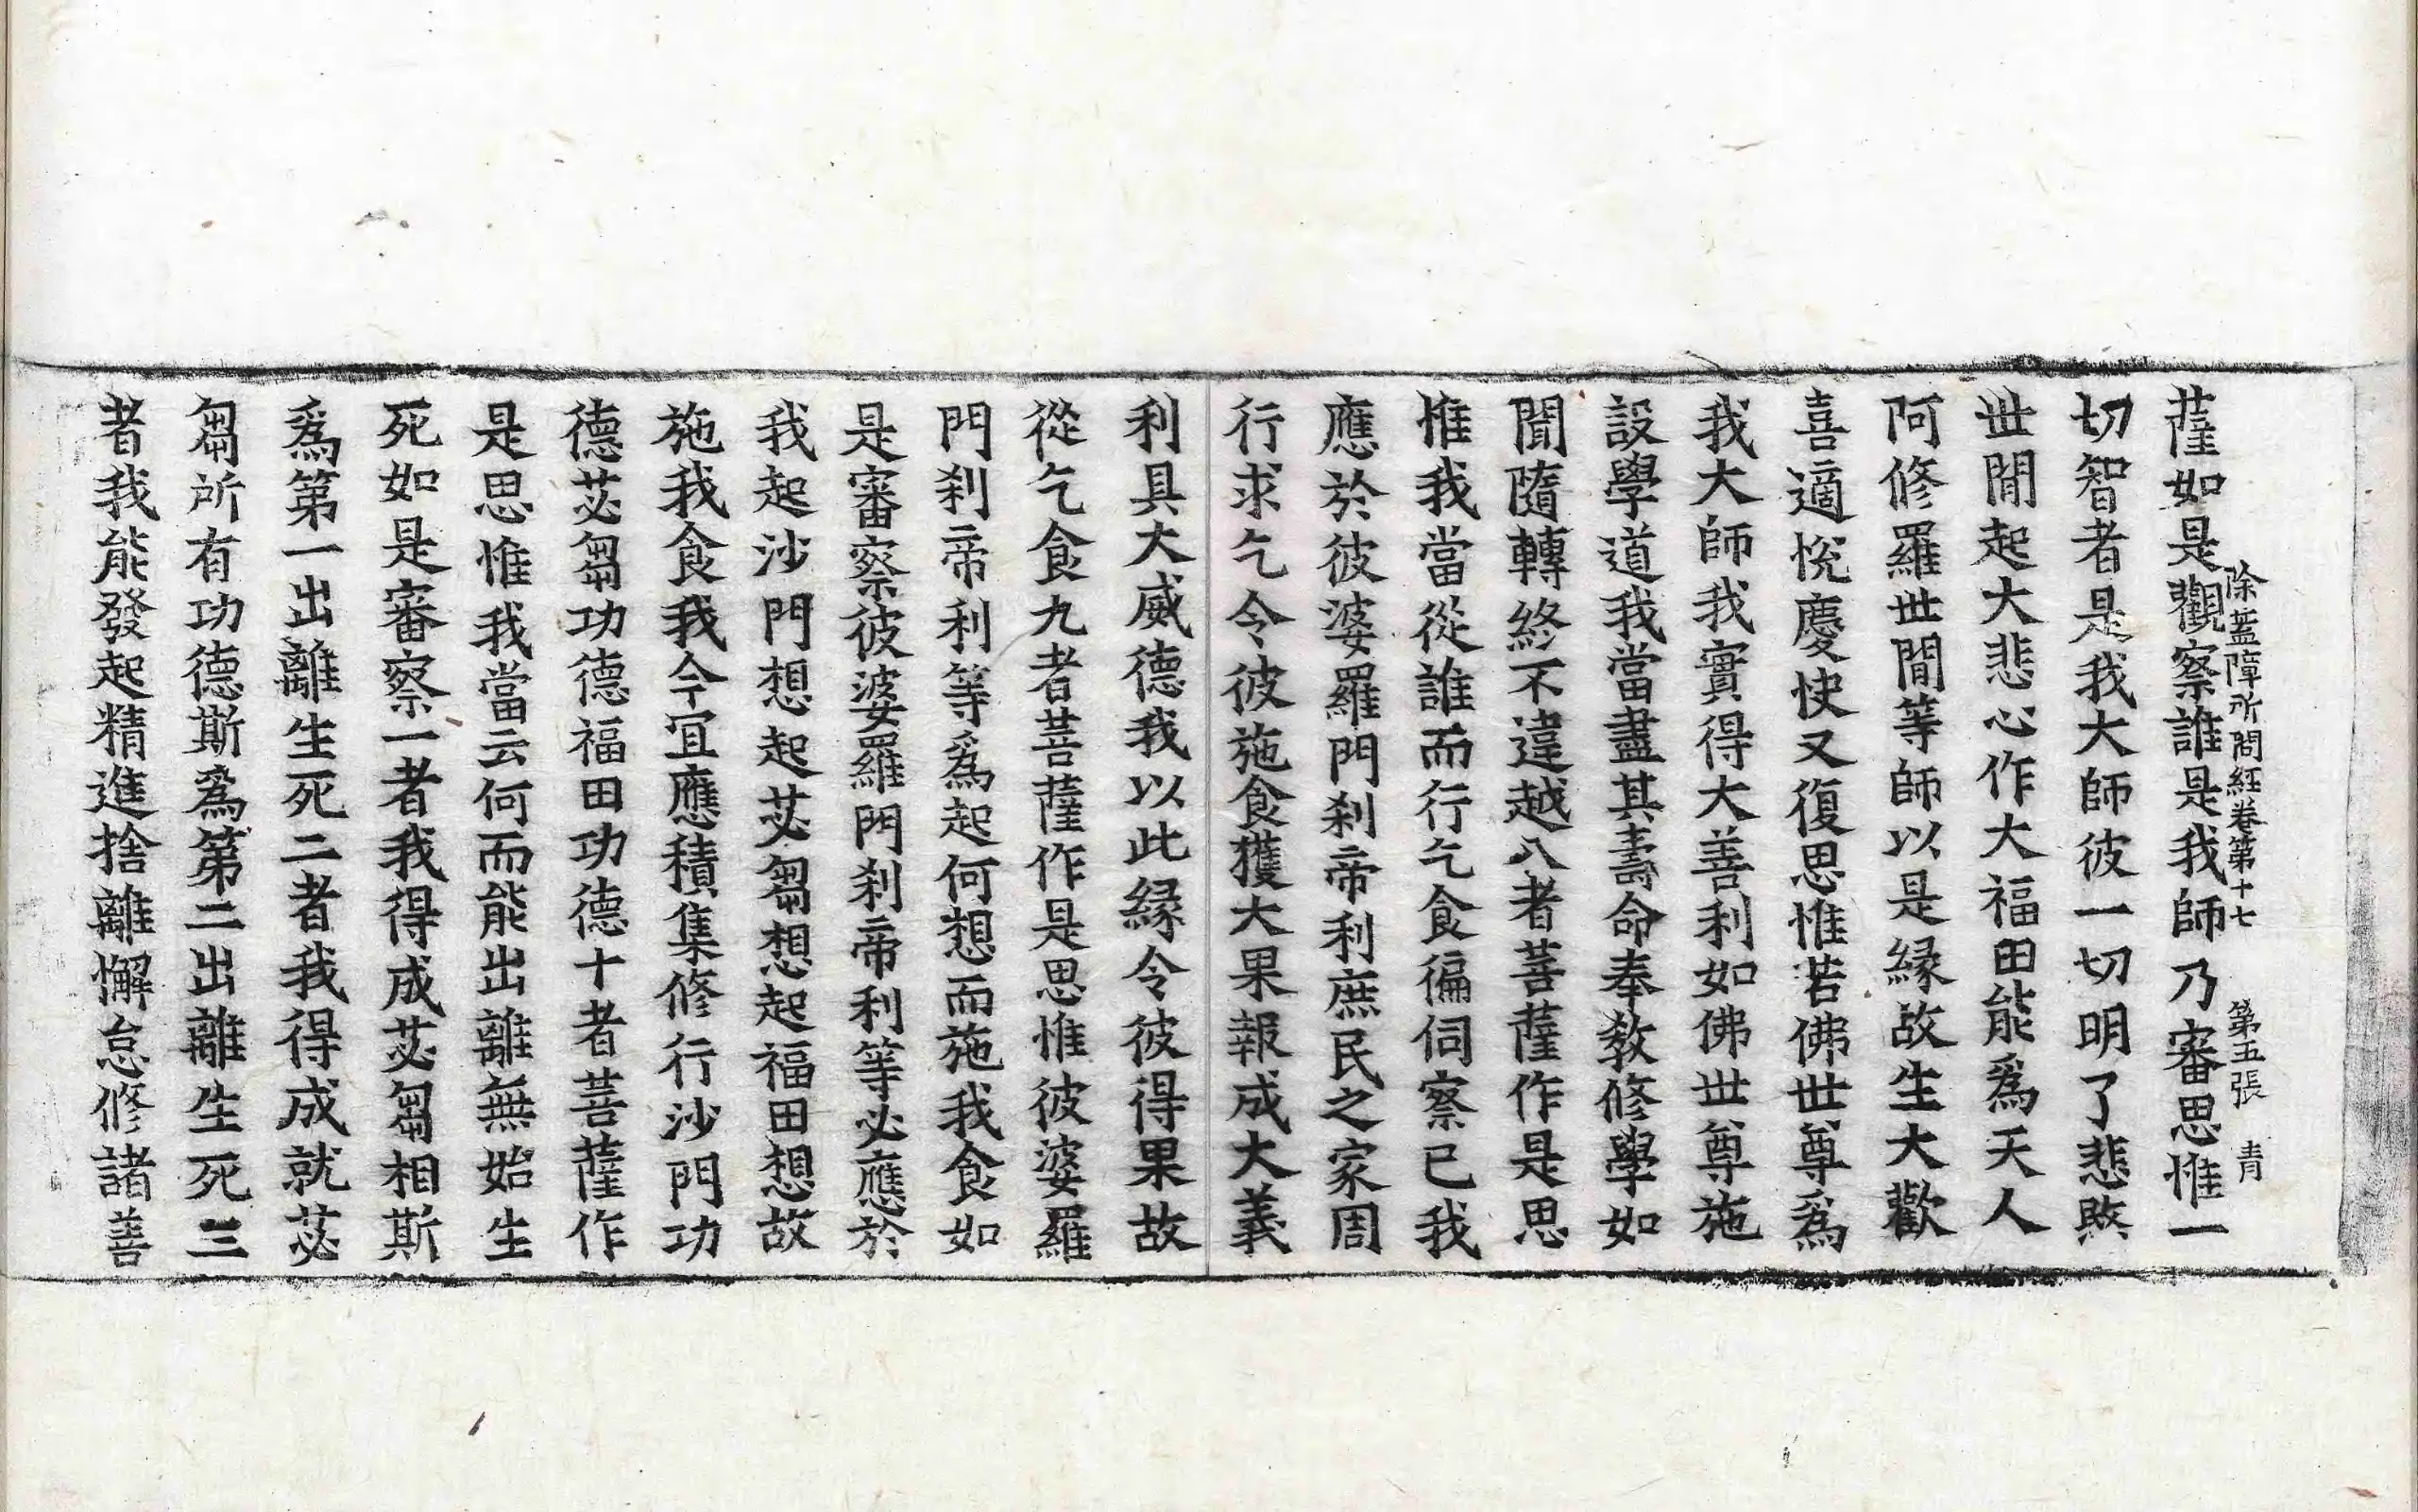 除蓋障所問經卷第十七　第五張　青
薩如是觀察誰是我師乃審思惟一
切智者是我大師彼一切明了悲愍
世閒起大悲心作大福田能爲天人
阿修羅世閒等師以是緣故生大歡
喜適恱慶快又復思惟若佛世尊爲
我大師我實得大善利如佛世尊施
設學道我當盡其壽命奉敎修學如
聞隨轉終不違越八者菩薩作是思
惟我當從誰而行乞食徧伺察已我
應於彼婆羅門刹帝利庶民之家周
行求乞令彼施食獲大果報成大義
利具大威德我以此緣令彼得果故
從乞食九者菩薩作是思惟彼婆羅
門刹帝利等爲起何想而施我食如
是審察彼婆羅門刹帝利等必應於
我起沙門想起苾芻想起福田想故
施我食我今宜應積集修行沙門功
德苾芻功德福田功德十者菩薩作
是思惟我當云何而能出離無始生
死如是審察一者我得成苾芻相斯
爲第一出離生死二者我得成就苾
芻所有功德斯爲第二出離生死三
者我能發起精進捨離懈怠修諸善